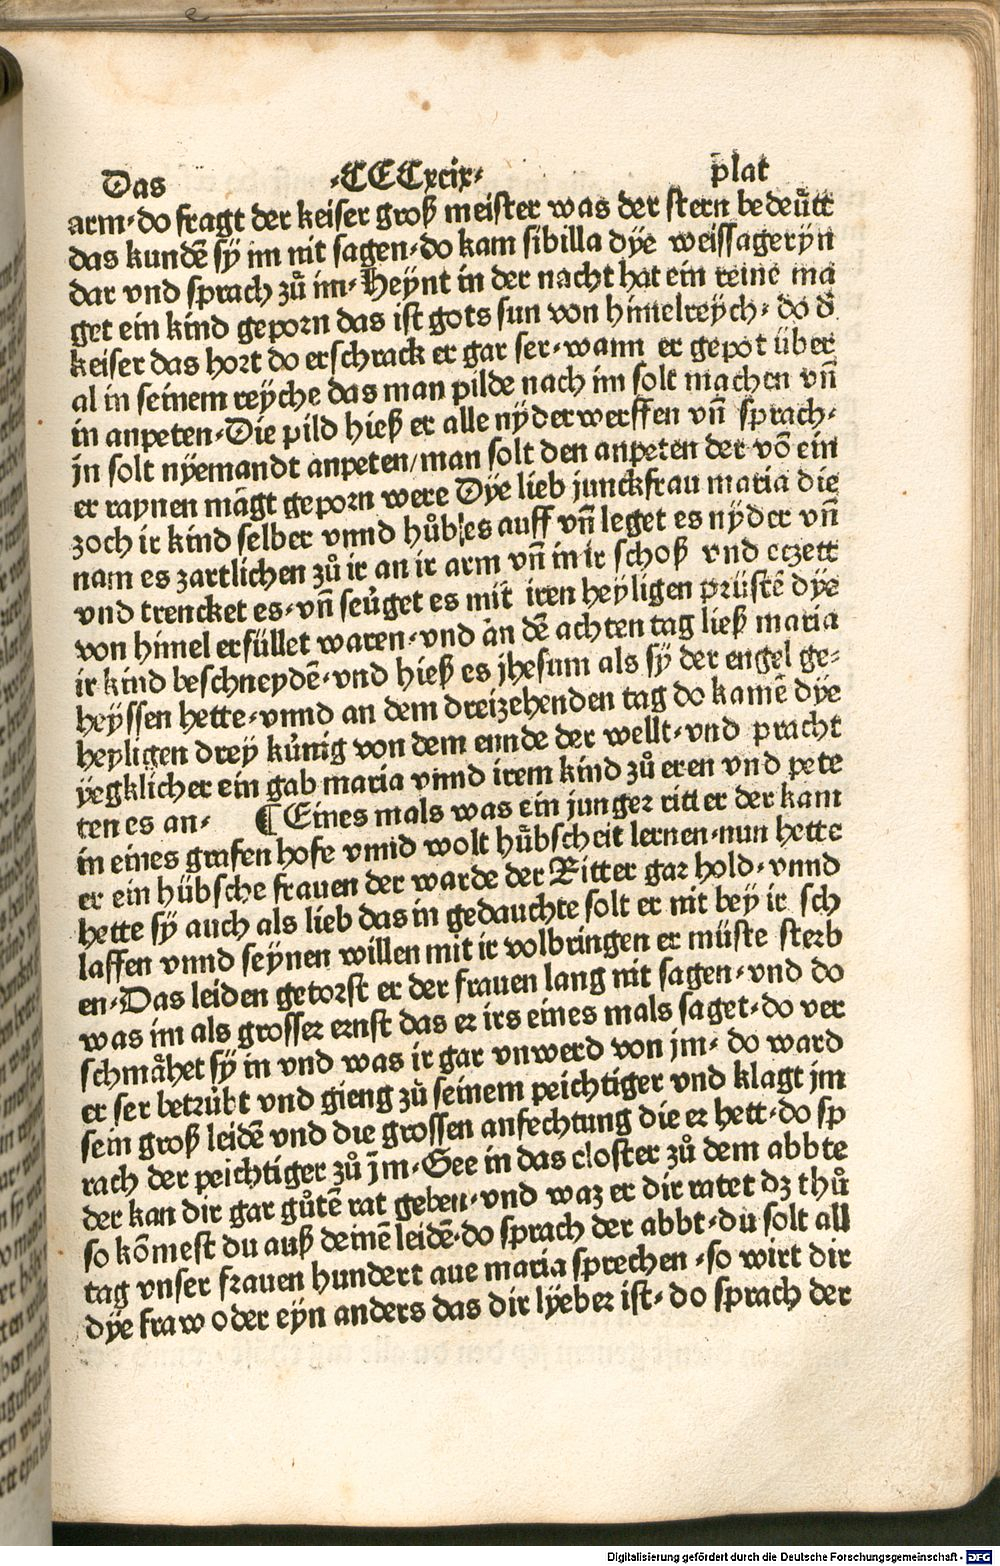 Das ·CCCxcix· plat
arm· do fragt der keiser groß meister was der stern bedeůtt
das kundē sÿ im nit sagen· do kam sibilla dÿe weissagerÿn
dar vnd sprach zů im· Heÿnt in der nacht hat ein reine ma
get ein kind geporn das ist gots sun von himelreÿch· do d̄
keiser das hort do erschrack er gar ser· wann er gepot über
al in seinem reÿche das man pilde nach im solt machen vn̄
in anpeten· Die pild hieß er alle nÿderwerffen vn̄ sprach·
jn solt nÿemandt anpeten/ man solt den anpeten der vō ein
er raynen mägt geporn were Dÿe lieb junckfrau maria die
zoch ir kind selber vnnd hůb es auff vn̄ leget es nÿder vn̄
nam es zartlichen zů ir an ir arm vn̄ in ir schoß vnd eczett
vnd trencket es· vn̄ seůget es mit iren heÿligen prüstē dÿe
von himel erfüllet waren· vnd an dē achten tag ließ maria
ir kind beschneydē· vnd hieß es jhesum als sÿ der engel ge⸗
heÿssen hette· vnnd an dem dreizehenden tag do kamē dÿe
heyligen dreÿ kůnig von dem ennde der wellt· vnd pracht
ÿegklicher ein gab maria vnnd irem kind zů eren vnd pete
ten es an· ¶ Eines mals was ein junger ritter der kam
in eines grafen hofe vnnd wolt hůbscheit lernen· nun hette
er ein hübsche frauen der warde der Ritter gar hold· vnnd
hette sÿ auch als lieb das in gedauchte solt er nit bey ir sch
laffen vnnd seÿnen willen mit ir volbringen er müste sterb
en· Das leiden getorst er der frauen lang nit sagen· vnd do
was im als grosser ernst das er irs eines mals saget· do ver
schmåhet sÿ in vnd was ir gar vnwerd von jm· do ward
er ser betrůbt vnd gieng zů seinem peichtiger vnd klagt jm
sein groß leidē vnd die grossen anfechtung die er hett· do sp
rach der peichtiger zů jm· Gee in das closter zů dem abbte
der kan dir gar gůtē rat geben· vnd waz er dir ratet dz thů
so kōmest du auß deinē leidē· do sprach der abbt· du solt all
tag vnser frauen hundert aue maria sprechen · so wirt dir
dÿe fraw oder eÿn anders das dir lÿeber ist· do sprach der
Digitalisierung gefördert durch die Deutsche Forschungsgemeinschaft - DFG